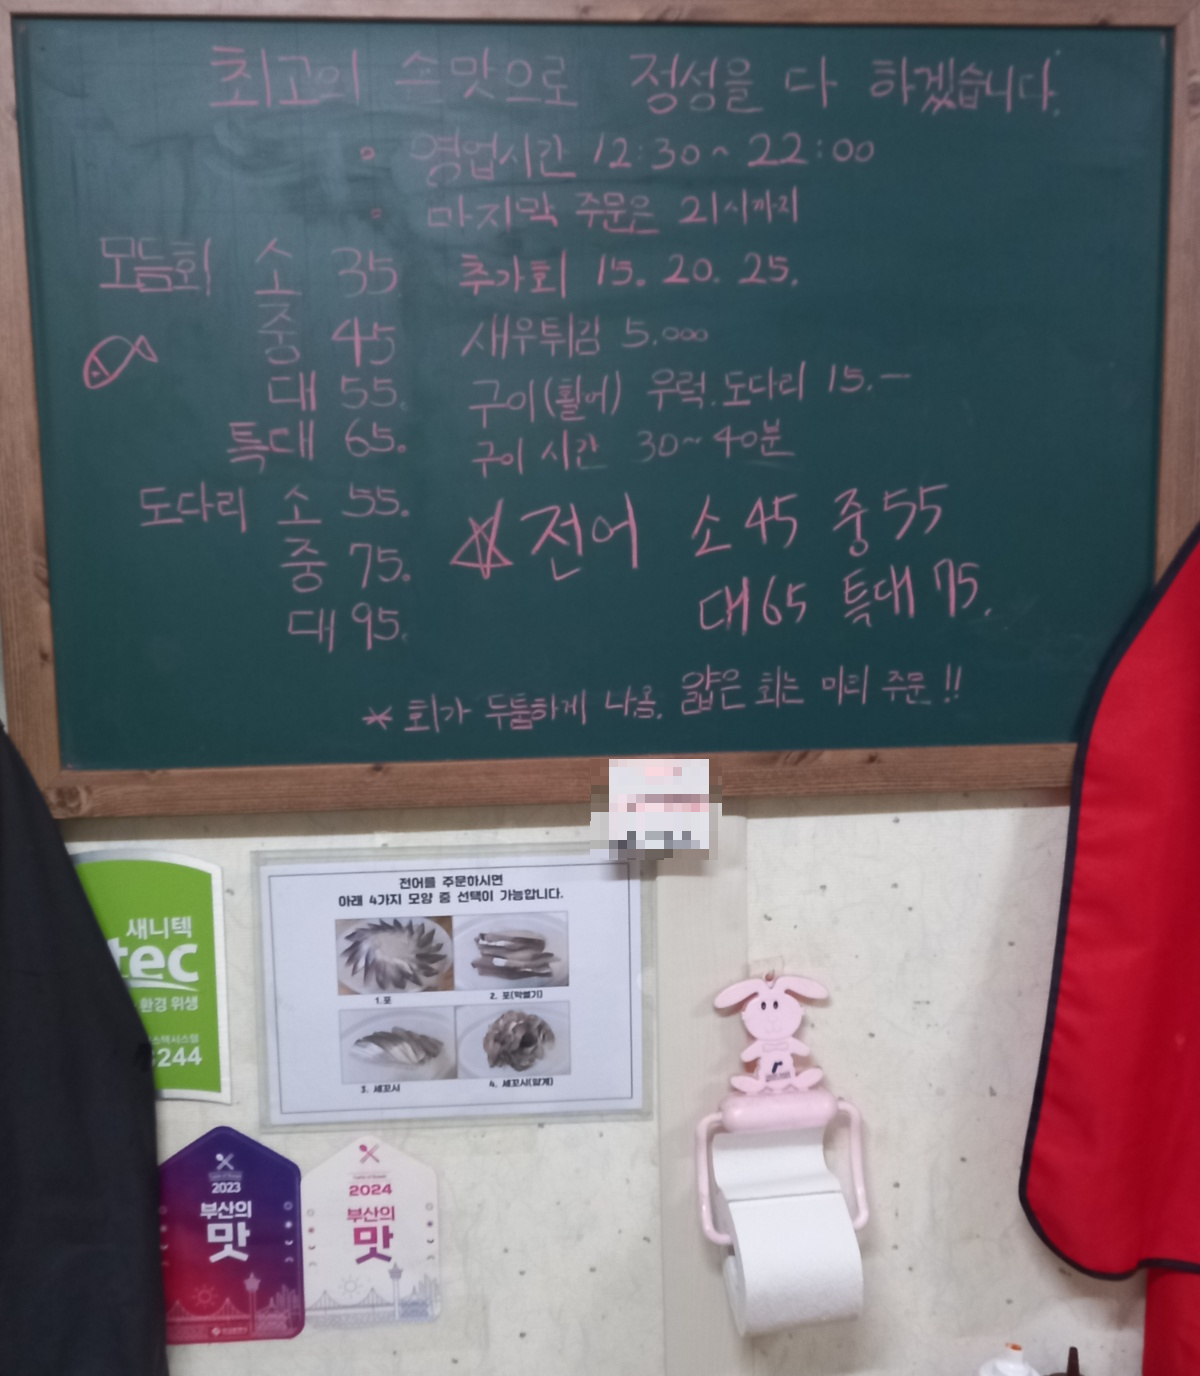 최고의 손맛으로 정성을 다 하겠습니다.
• 영업시간 12:30~22:00
• 마지막 주문은 21시까지
모듬회 소 35 추가회 15. 20. 25.
중 45 새우튀김 5.000
대 55. 구이(활어) 우럭.도다리 15.一
특대 65. 구이 시간 30~40분
도다리 소 55. ☆전어 소 45 중 55
중 75. 대 65 특대 75.
대 95.
* 회가 두툼하게 나옴. 얇은 회는 미리 주문!!
새니텍
tec
환경위생
244
전어를 주문하시면
아래 4가지 모양 중 선택이 가능합니다.
1.포 2. 포(막썰기)
3. 세꼬시 4. 세꼬시(얇게)
2023
부산의
맛
2024
부산의
맛